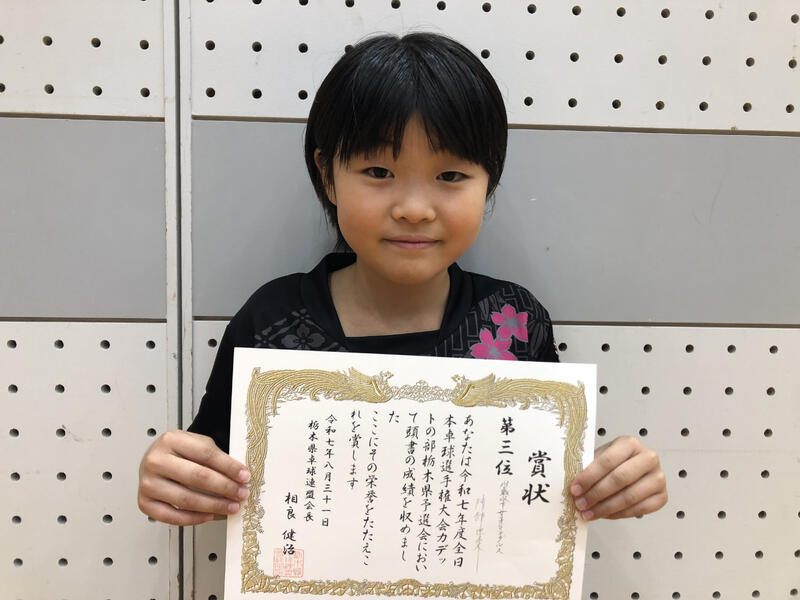 賞状
第三位
あなたは令和七年度全日
本卓球選手権大会カデッ
トの部栃木県予選会におい
て頭書の成績を収めまし
た
ここにその栄誉をたたえこ
れを賞します
令和七年八月三十一日
栃木県卓球連盟会長
相良 健治